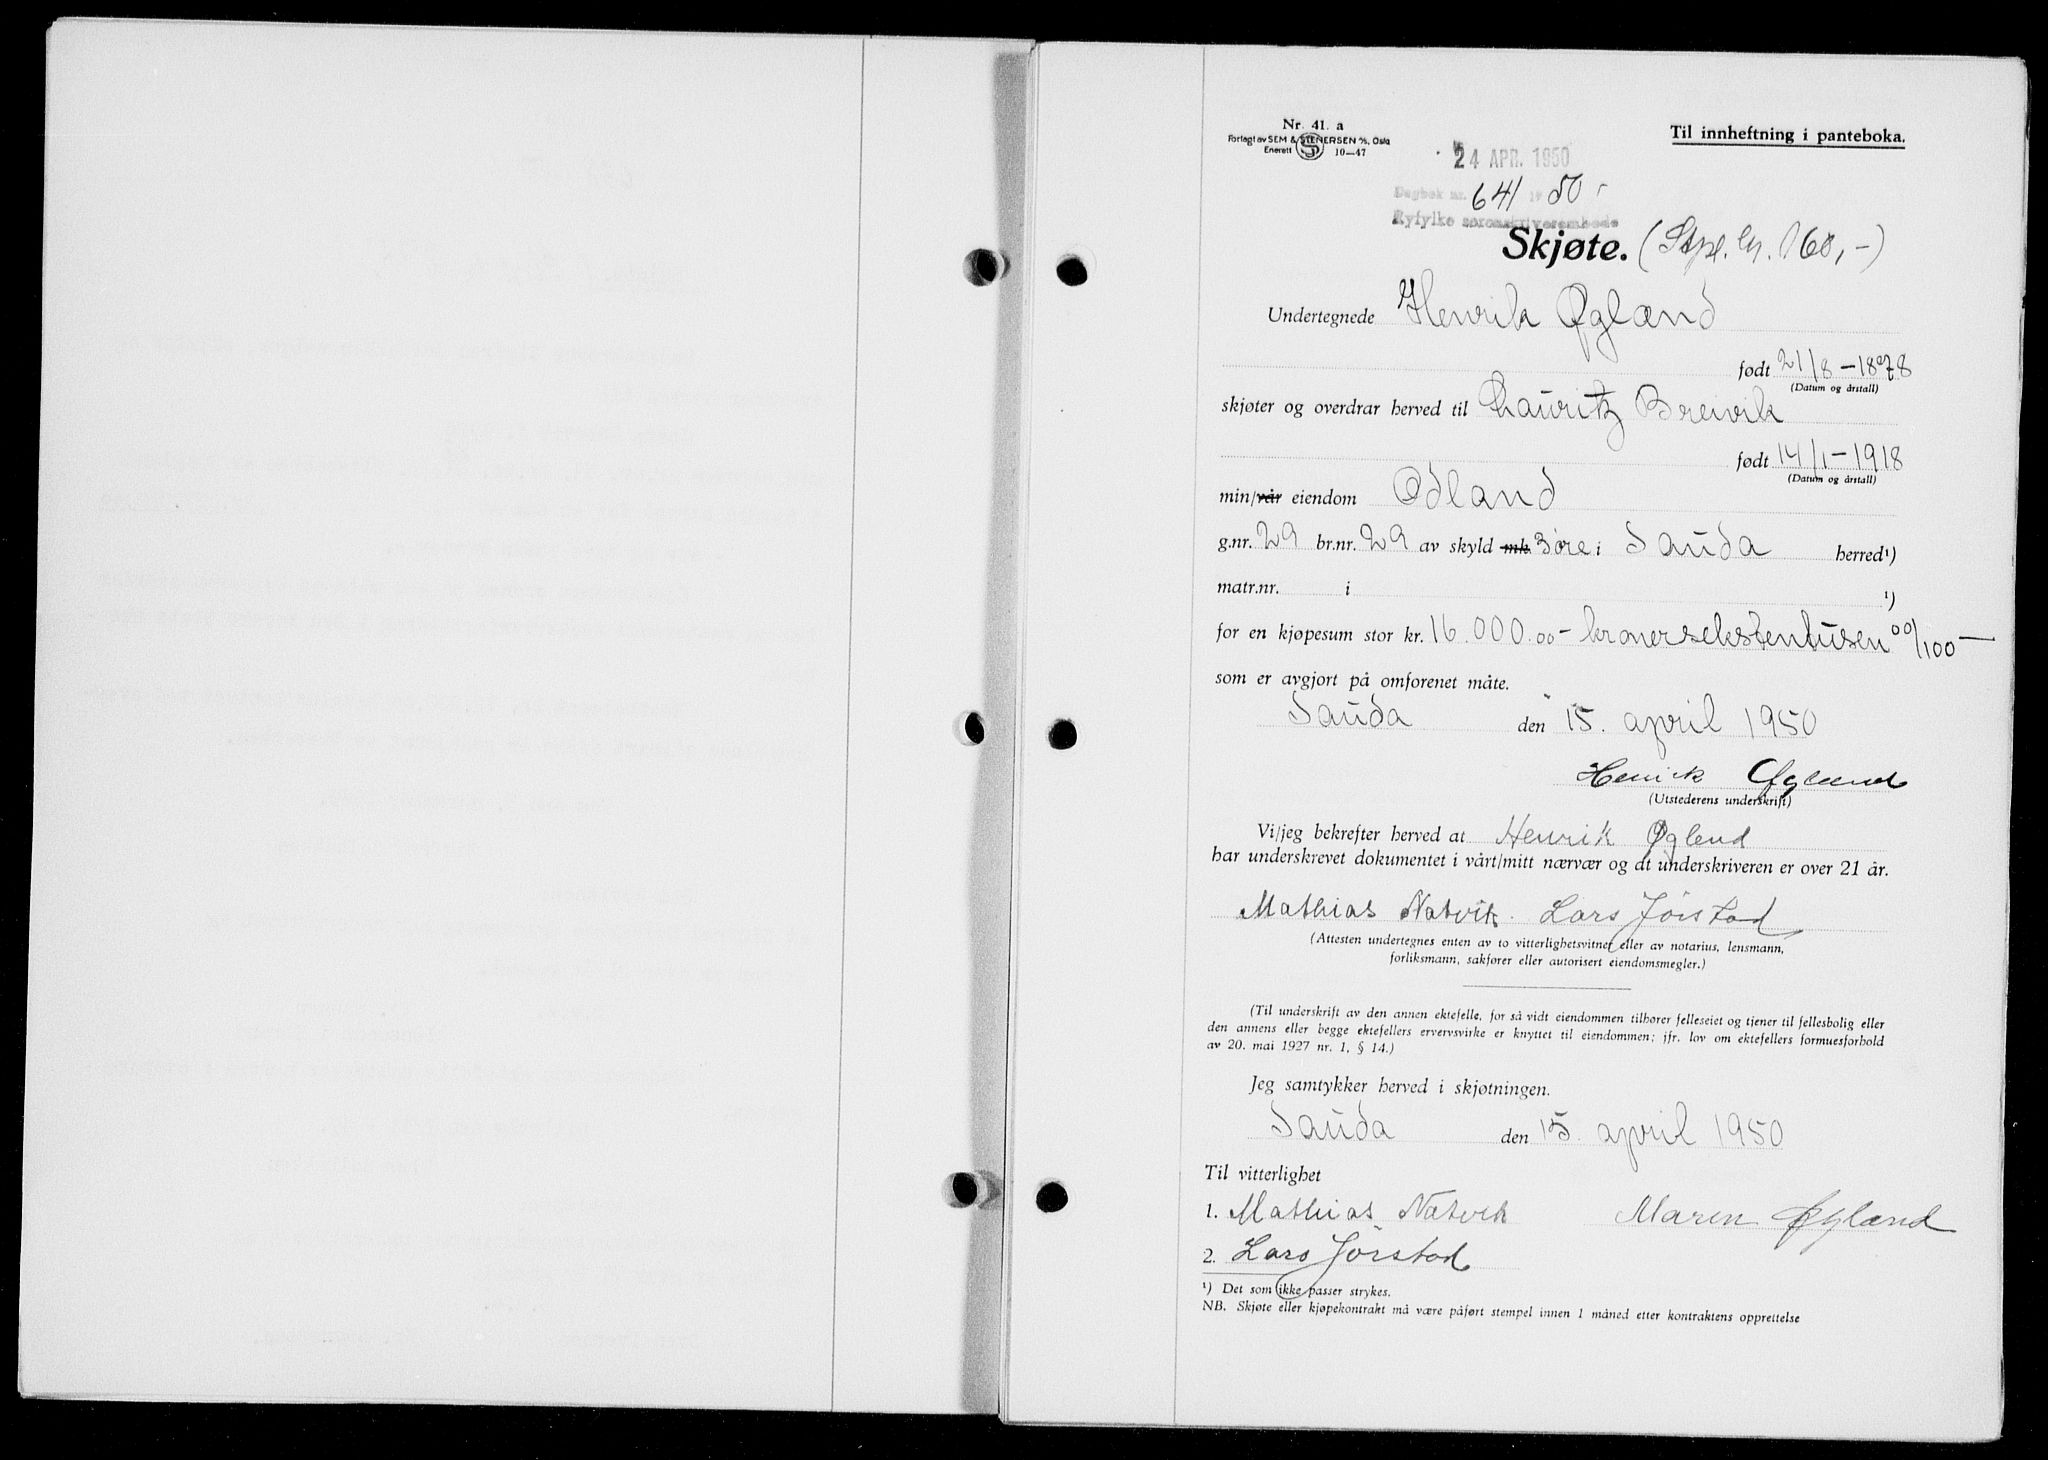 Nr. 41. a
Forlagt av SEM & STENERSEN A/S, Oslo
Enerett 10—47
Til innheftning i panteboka.
24 APR. 1950
Dagbok nr. 641 19 50
Ryfylke sorenskriverembede
Skjøte. (Stpl. kr. 160,-)
Undertegnede Henrik Øgland
født 21/8-1878
(Datum og årstall)
skjøter og overdrar herved til Lauritz Breivik
født 14/1-1918
(Datum og årstall)
min/vår eiendom Ødland
g.nr. 29 br.nr. 29 av skyld mk. 3 øre i Sauda herred¹)
matr.nr. i ¹)
for en kjøpesum stor kr. 16.000.00 - kronersekstentusen 00/100 -
som er avgjort på omforenet måte.
Sauda den 15. april 1950
Henrik Øgland
(Utstederens underskrift)
Vi/jeg bekrefter herved at Henrik Øglend
har underskrevet dokumentet i vårt/mitt nærvær og at underskriveren er over 21 år.
Mathias Natvik. Lars Jørstad
(Attesten undertegnes enten av to vitterlighetsvitner eller av notarius, lensmann,
forliksmann, sakfører eller autorisert eiendomsmegler.)
(Til underskrift av den annen ektefelle, for så vidt eiendommen tilhører felleseiet og tjener til fellesbolig eller
den annens eller begge ektefellers ervervsvirke er knyttet til eiendommen; jfr. lov om ektefellers formuesforhold
av 20. mai 1927 nr. 1, § 14.)
Jeg samtykker herved i skjøtningen.
Sauda den 15. april 1950
Til vitterlighet
1. Mathias Natvik Maren Øgland
2. Lars Jørstad
¹) Det som ikke passer strykes.
NB. Skjøte eller kjøpekontrakt må være påført stempel innen 1 måned etter kontraktens opprettelse